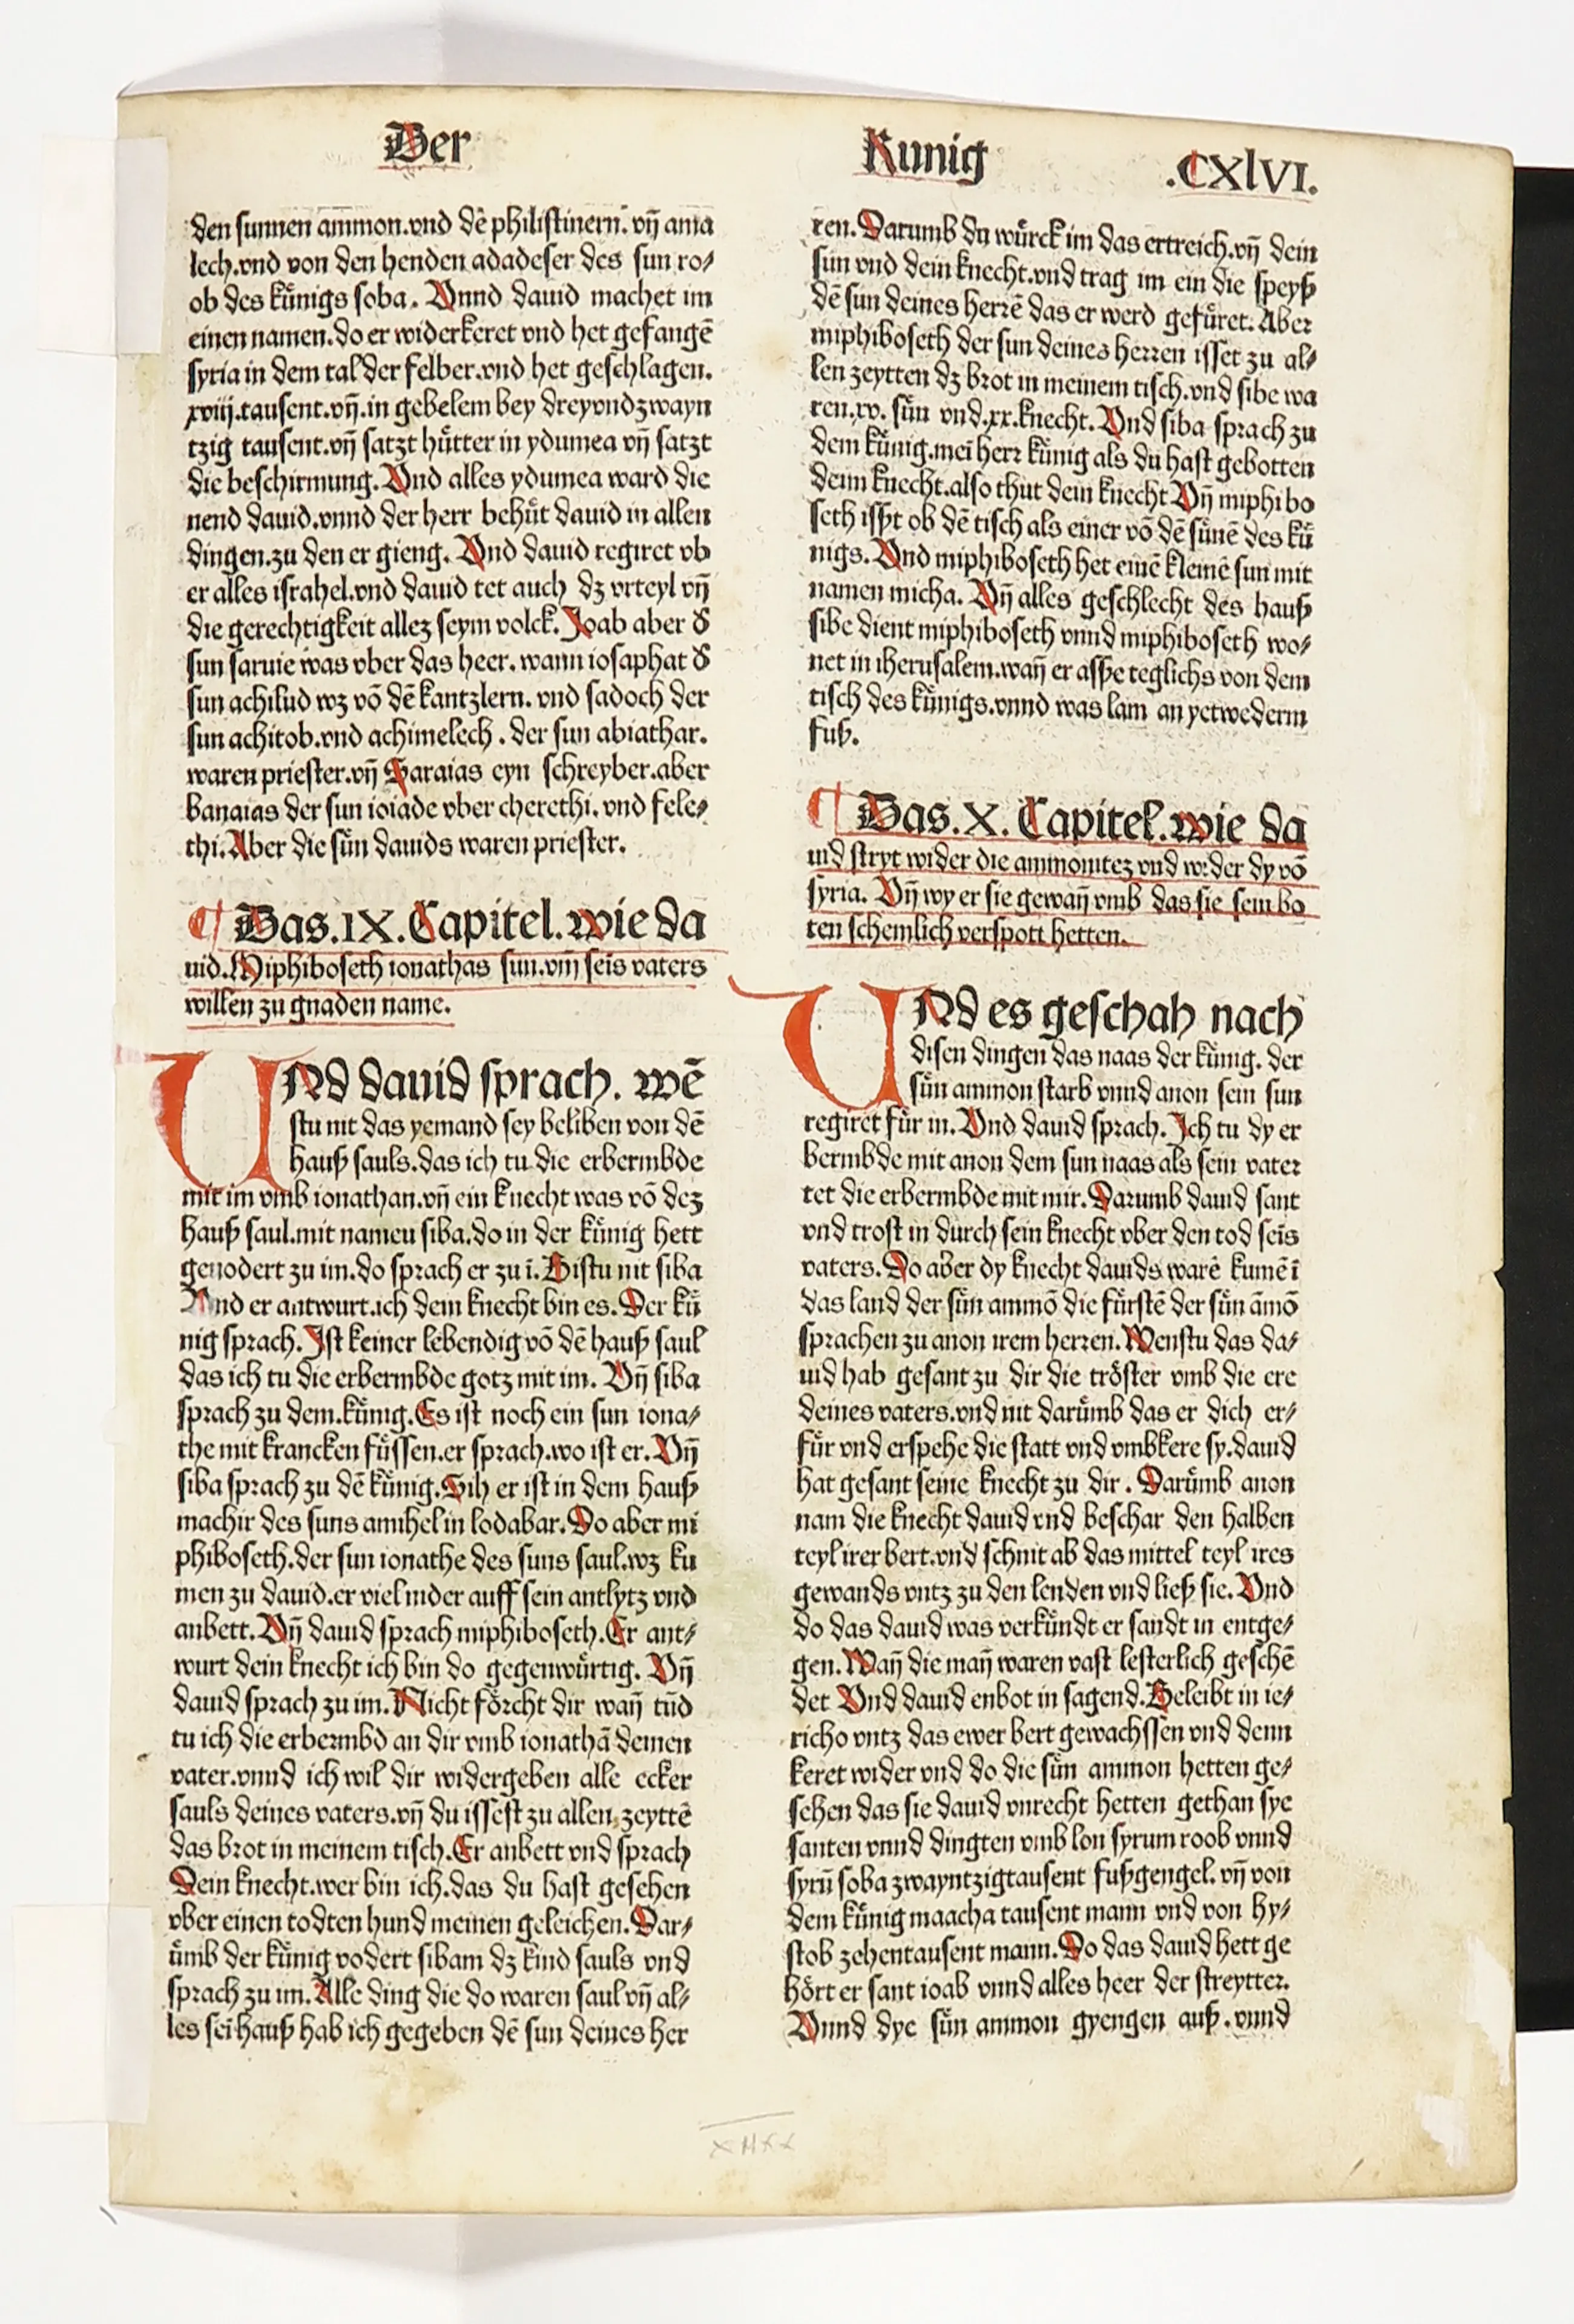 Der
Kunig
.CXlVI.
den sunnen ammon.vnd dē philistinern. vn̄ ama
lech.vnd von den henden adadeser des sun ro⸗
ob des kuͤnigs soba. Vnnd dauid machet im
einen namen.do er widerkeret vnd het gefangē
syria in dem tal der felber.vnd het geschlagen.
xviij.tausent.vn̄.in gebelem bey dreyvndzwayn
tzig tausent.vn̄ satzt huͤtter in ydumea vn̄ satzt
die beschirmung. Vnd alles ydumea ward die
nend dauid.vnnd der herr behuͤt dauid in allen
dingen.zu den er gieng. Vnd dauid regiret vb
er alles israhel.vnd dauid tet auch dz vrteyl vn̄
die gerechtigkeit allez seym volck. Joab aber d̕
sun saruie was vber das heer. wann iosaphat d̕
sun achilud wz vō dē kantzlern. vnd sadoch der
sun achitob.vnd achimelech. der sun abiathar.
waren priester.vn̄ Saraias eyn schreyber.aber
banaias der sun ioiade vber cherethi. vnd fele⸗
thi. Aber die suͤn dauids waren priester.
¶ Das.IX.Capitel.wie da
uid.Miphiboseth ionathas sun.vm seis vaters
willen zu gnaden name.
UNd dauid sprach. wē
stu nit das yemand sey beliben von dē
hauß sauls.das ich tu die erbermbde
mit im vmb ionathan.vn̄ ein knecht was vō dez
hauß saul.mit namen siba.do in der kuͤnig hett
geuodert zu im.do sprach er zu ī. Bistu nit siba
Vnd er antwurt.ich dein knecht bin es. Der kuͤ
nig sprach. Ist keiner lebendig vō dē hauß saul
das ich tu die erbermbde gotz mit im. Vn̄ siba
sprach zu dem.kuͤnig. Es ist noch ein sun iona⸗
the mit krancken fuͤssen.er sprach.wo ist er. Vn̄
siba sprach zu dē kuͤnig. Sih er ist in dem hauß
machir des suns amihel in lodabar. Do aber mi
phiboseth.der sun ionathe des suns saul.wz ku
men zu dauid.er viel nider auff sein antlytz vnd
anbett. Vn̄ dauid sprach miphiboseth. Er ant⸗
wurt dein knecht ich bin do gegenwuͤrtig. Vn̄
dauid sprach zu im. Nicht foͤrcht dir wan̄ tūd
tu ich die erbermbd an dir vmb ionathā deinen
vater.vnnd ich wil dir widergeben alle ecker
sauls deines vaters.vn̄ du issest zu allen zeyttē
das brot in meinem tisch. Er anbett vnd sprach
Dein knecht.wer bin ich.das du hast gesehen
vber einen todten hund meinen geleichen. Dar⸗
uͤmb der kuͤnig vodert sibam dz kind sauls vnd
sprach zu im. Alle ding die do waren saul vn̄ al⸗
les seī hauß hab ich gegeben dē sun deines her
ren. Darumb du wuͤrck im das ertreich.vn̄ dein
sun vnd dein knecht.vnd trag im ein die speyß
dē sun deines herrē das er werd gefuͤret. Aber
miphiboseth der sun deines herren isset zu al⸗
len zeytten dz brot in meinem tisch.vnd sibe wa
ren.xv. suͤn vnd.xx.knecht. Vnd siba sprach zu
dem kuͤnig.mei herr kuͤnig als du hast gebotten
deim knecht.also thut dein knecht Vn̄ miphibo
seth ißt ob dē tisch als einer vō dē suͤnē des kuͤ
nigs. Vnd miphiboseth het einē kleinē sun mit
namen micha. Vn̄ alles geschlecht des hauß
sibe dient miphiboseth vnnd miphiboseth wo⸗
net in iherusalem.wan̄ er asse teglichs von dem
tisch des kuͤnigs.vnnd was lam an yetwederm
fuß.
¶ Das.X.Capitel.wie da
uid stryt wider die ammonitez vnd wider dy vō
syria. Vn̄ wy er sie gewan̄ vmb das sie sein bo
ten schemlich verspott hetten.
UNd es geschah nach
disen dingen das naas der kuͤnig. der
suͤn ammon starb vnnd anon sein sun
regiret fuͤr in. Vnd dauid sprach. Ich tu dy er
bermbde mit anon dem sun naas als sein vater
tet die erbermbde mit mir. Darumb dauid sant
vnd trost in durch sein knecht vber den tod seis
vaters. Do aber dy knecht dauids warē kumē ī
das land der suͤn ammō die fuͤrstē der suͤn āmō
sprachen zu anon irem herren. Wenstu das da⸗
uid hab gesant zu dir die troͤster vmb die ere
deines vaters.vnd nit daruͤmb das er dich er⸗
fuͤr vnd erspehe die statt vnd vmbkere sy.dauid
hat gesant seine knecht zu dir. Daruͤmb anon
nam die knecht dauid vnd beschar den halben
teyl irer bert.vnd schnit ab das mittel teyl ires
gewands vntz zu den lenden vnd ließ sie. Vnd
do das dauid was verkuͤndt er sandt in entge⸗
gen. Wan̄ die man̄ waren vast lesterlich geschē
det Vnd dauid enbot in sagend. Beleibt in ie⸗
richo vntz das ewer bert gewachssen vnd denn
keret wider vnd do die suͤn ammon hetten ge⸗
sehen das sie dauid vnrecht hetten gethan sye
santen vnnd dingten vmb lon syrum roob vnnd
syrū soba zwayntzigtausent fußgengel. vn̄ von
dem kuͤnig maacha tausent mann vnd von hy⸗
stob zehentausent mann. Do das dauid hett ge
hoͤrt er sant ioab vnnd alles heer der streytter.
Vnnd dye suͤn ammon gyengen auß. vnnd